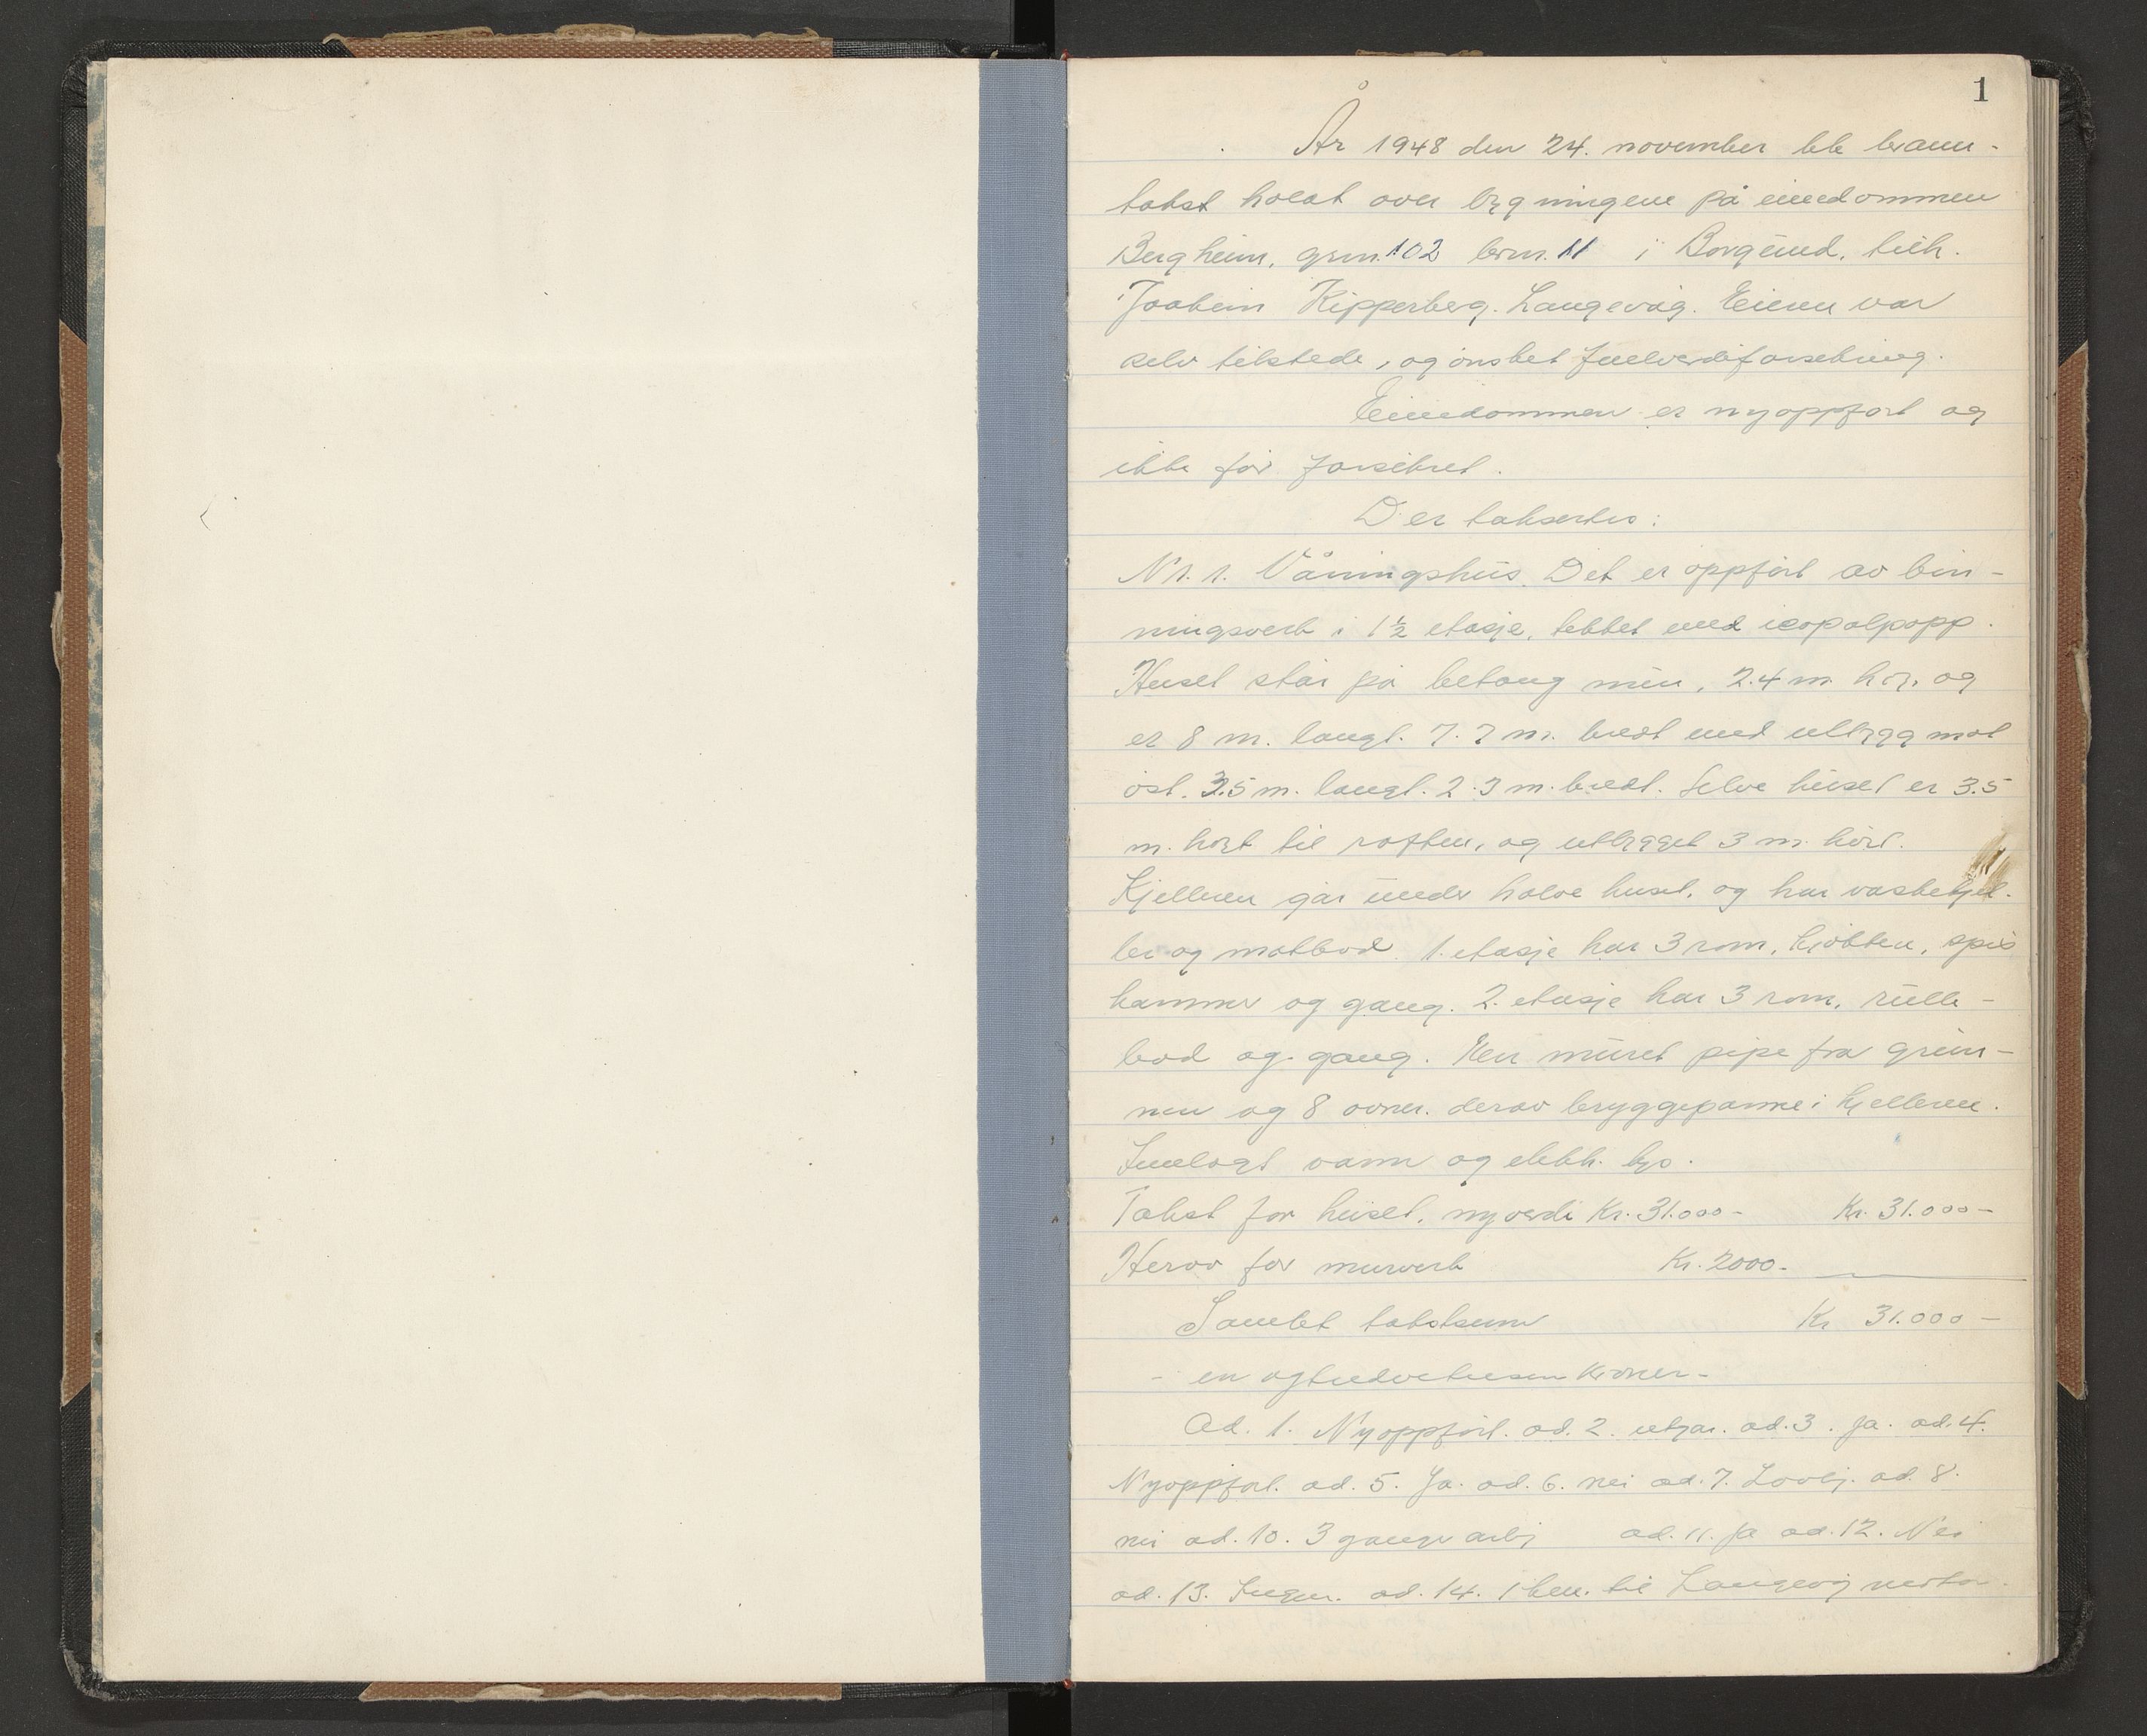 1
År 1948 den 24. november ble brann-
takst holdt over bygningene på eiendommen
Bergheim, grn. 102 brn. 11 i Borgund, tilh.
Joakim Kipperberg. Langevåg. Eieren var
selv tilstede, og ønsket fullverdiforsikring.
Eiendommen er nyoppført og
ikke før forsikret.
Der taksertes:
Nr. 1. Våningshus. Det er oppført av bin-
ningsverk i 1½ etasje, tekket med icopalpapp.
Huset står på betong mur, 2.4 m. høi, og
er 8 m. langt. 7.7 m. bredt med utbygg mot
øst. 3.5 m. langt. 2.3 m. bredt. Selve huset er 3.5
m. høit til raften, og utbygget 3 m. høit.
Kjelleren går under halve huset, og har vaskekjel-
ler og matbod. 1. etasje har 3 rom, kjøkken, spis
kammer og gang. 2. etasje har 3 rom, rulle-
bod og gang. En muret pipe fra grun-
nen og 8 ovner. derav bryggepanne i kjelleren.
Innlagt vann og elektr. lys.
Takst for huset, nyverdi Kr. 31.000- Kr. 31.000-
Herav for murverk Kr. 2000-
Samlet takstsum Kr 31.000-
- en ogtredvetusen kroner-
Ad. 1. Nyoppført. ad. 2. utgår. ad. 3. Ja. ad. 4.
Nyoppført. ad. 5. Ja. ad. 6. nei ad. 7. Lovlig. ad. 8.
nei ad. 10. 3 ganger årlig ad. 11. Ja ad. 12. Nei
ad. 13. Ingen. ad. 14. 1 km. til Langevåg